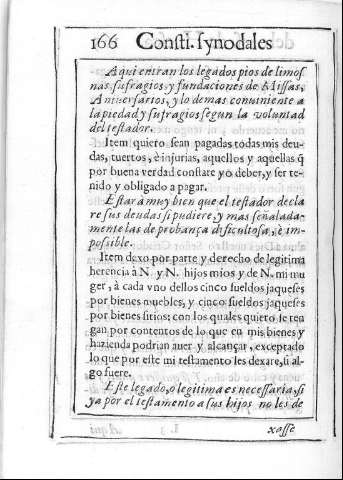 166 Consti. synodales
Aqui entran los legados pios de limos
nas, sufragios, y fundaciones de Missas,
Aniuersarios, y lo demas conuiniente a
la piedad y sufragios segun la voluntad
del testador.
Item quiero sean pagadas todas mis deu-
das, tuertos, è injurias, aquellos y aquellas q̃
por buena verdad constare yo deber, y ser te-
nido y obligado a pagar.
Estarà muy bien que el testador decla
re sus deudas si pudiere, y mas señalada-
mente las de probança dificultosa, è im-
possible.
Item dexo por parte y derecho de legitima
herencia à N. y N. hijos mios y de N. mi mu
ger, à cada vno dellos cinco sueldos jaqueses
por bienes muebles, y cinco sueldos jaqueses
por bienes sitios; con los quales quiero se ten
gan por contentos de lo que en mis bienes y
hazienda podrian auer y alcançar, exceptado
lo que por este mi testamento les dexare, si al-
go fuere.
Este legado, o legitima es necessaria, si
ya por el testamento a sus hijos no les de
xasse